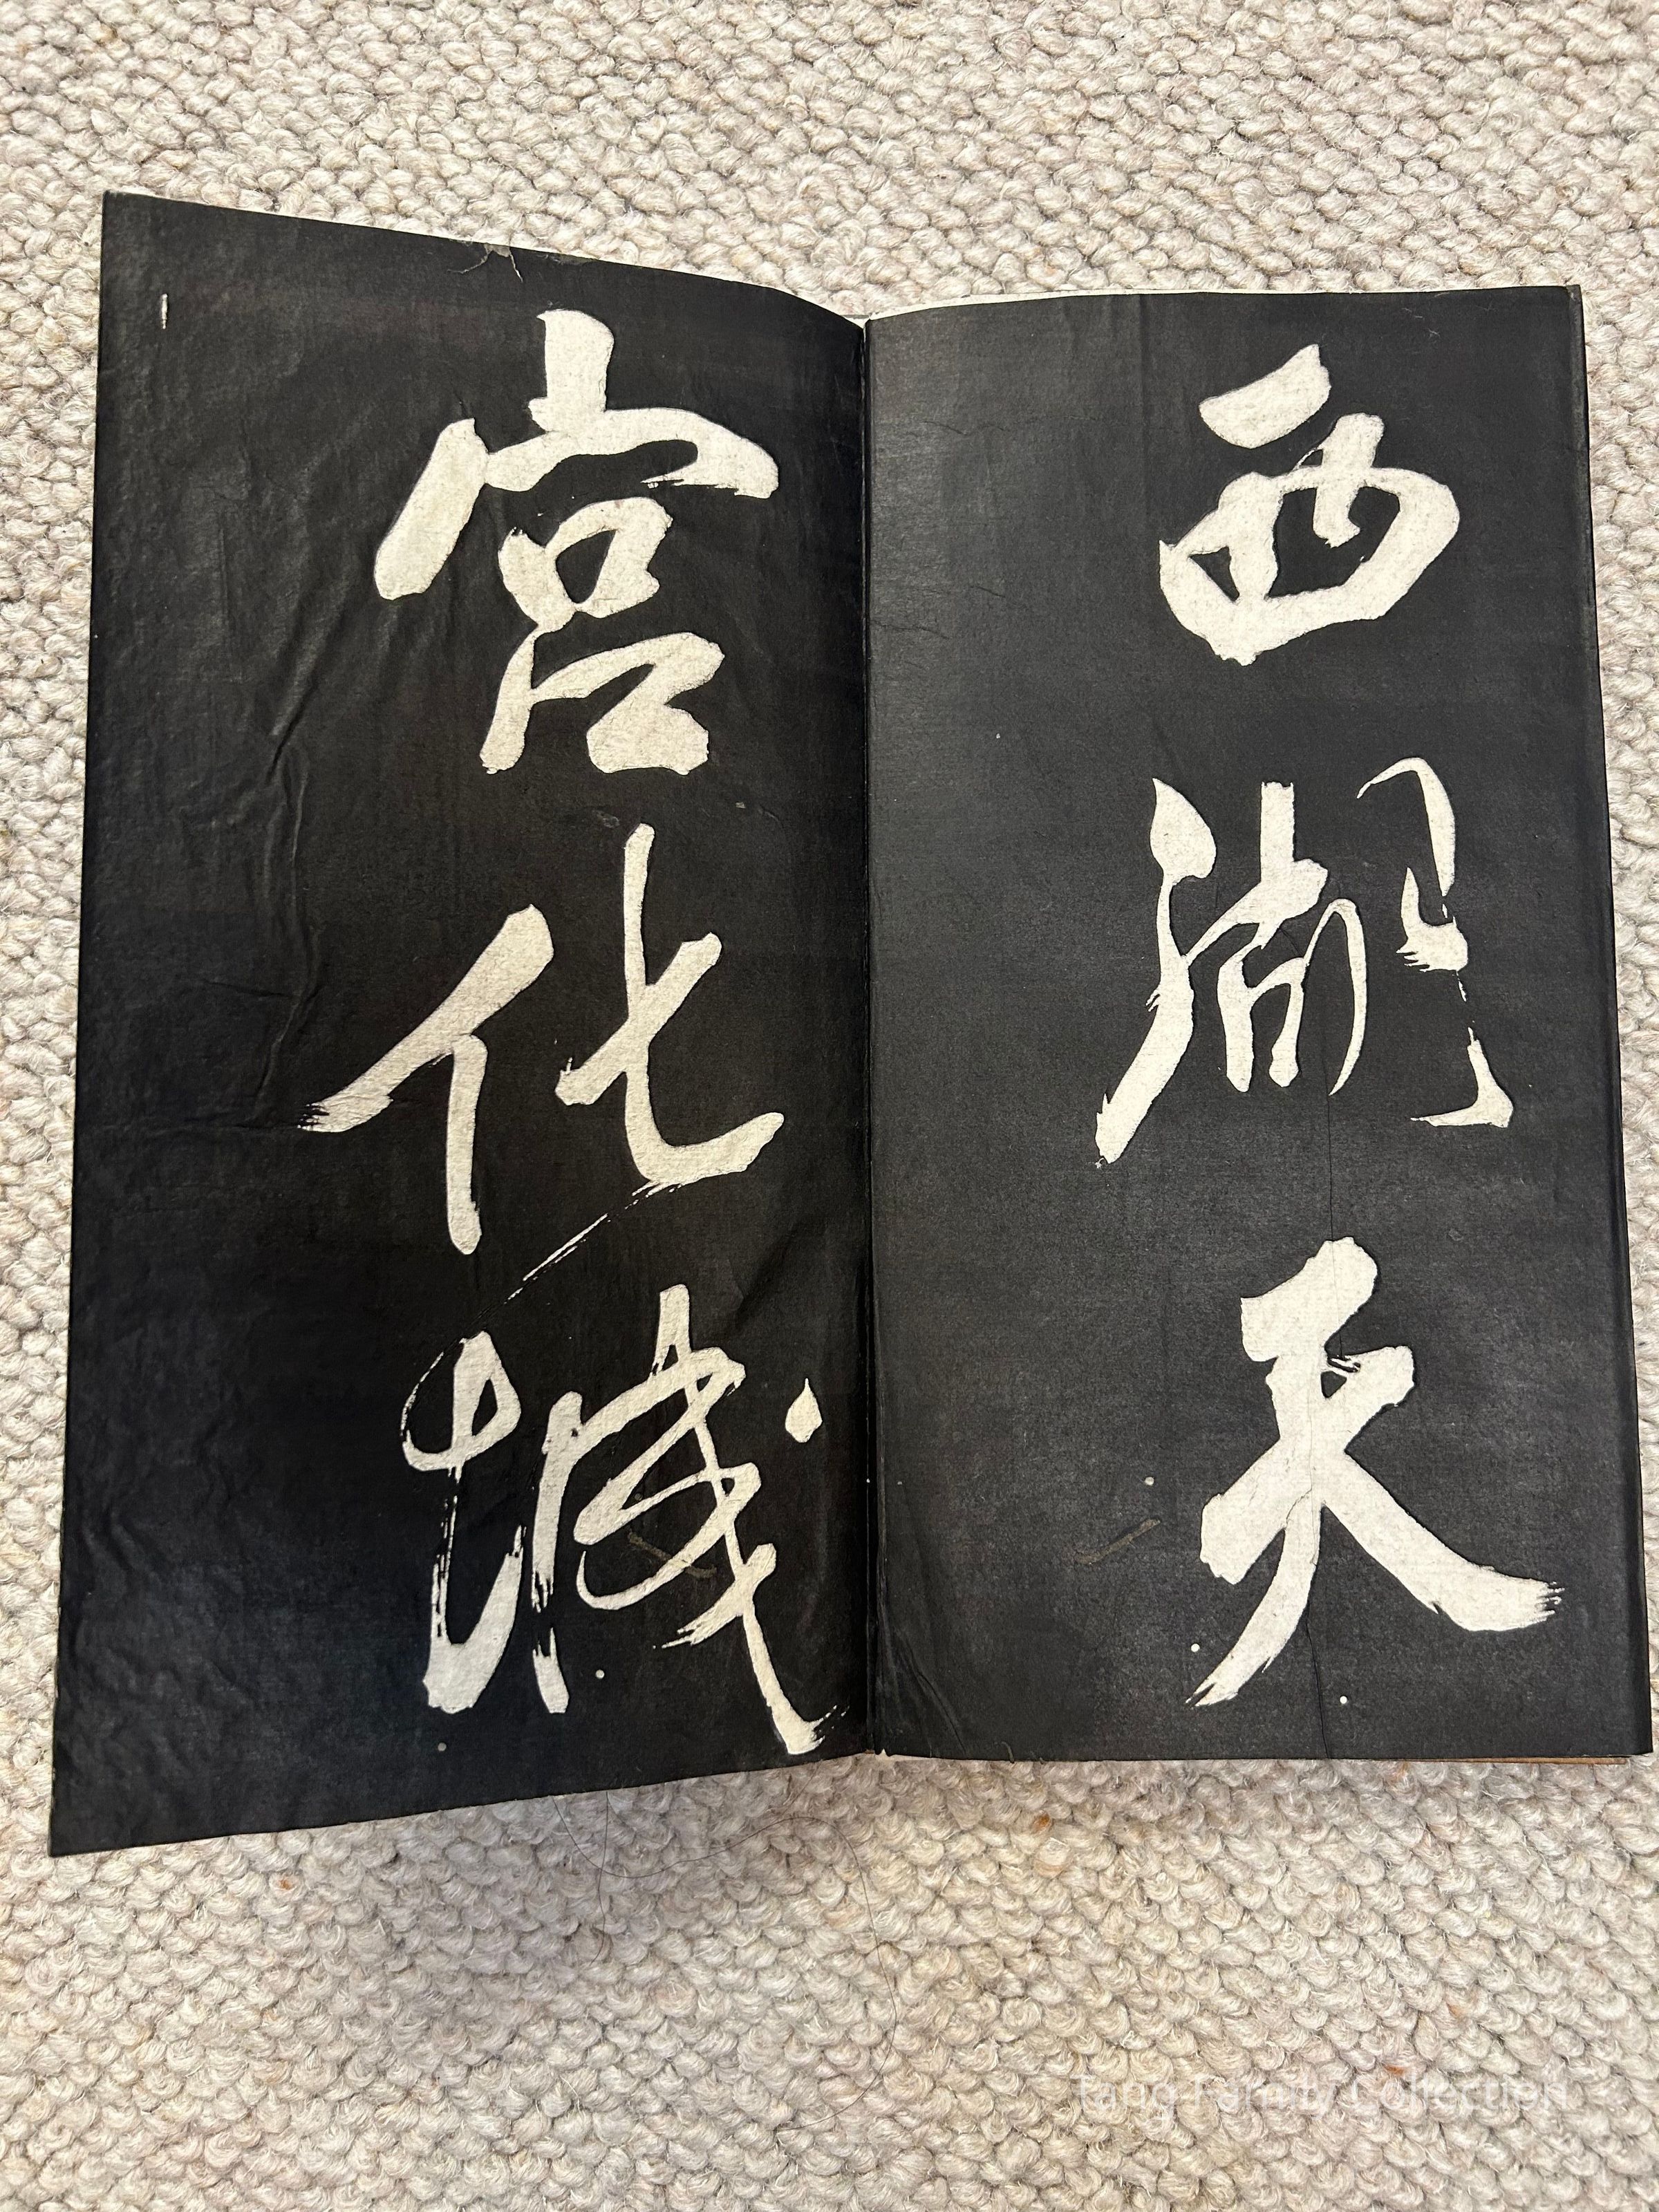 西湖天
宫化城
Tang Family Collection